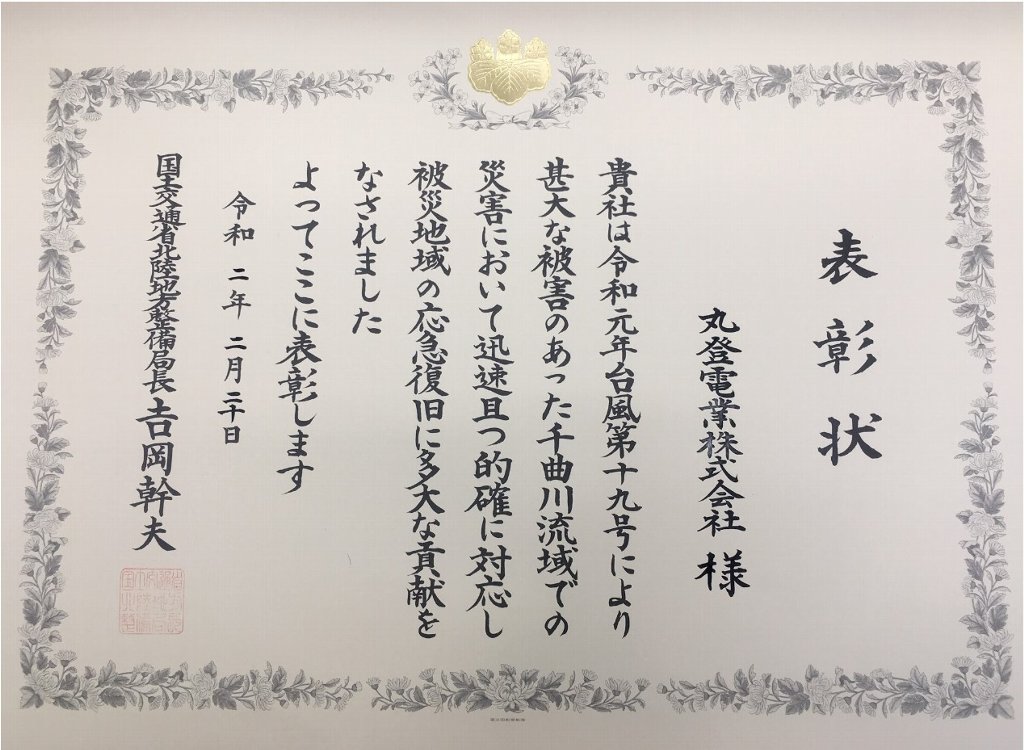 表彰状
丸登電業株式会社 様
貴社は令和元年台風第十九号により
甚大な被害のあった千曲川流域での
災害において迅速且つ的確に対応し
被災地域の応急復旧に多大な貢献を
なされました
よってここに表彰します
令和 二年 二月 二十日
国土交通省北陸地方整備局長 吉岡幹夫